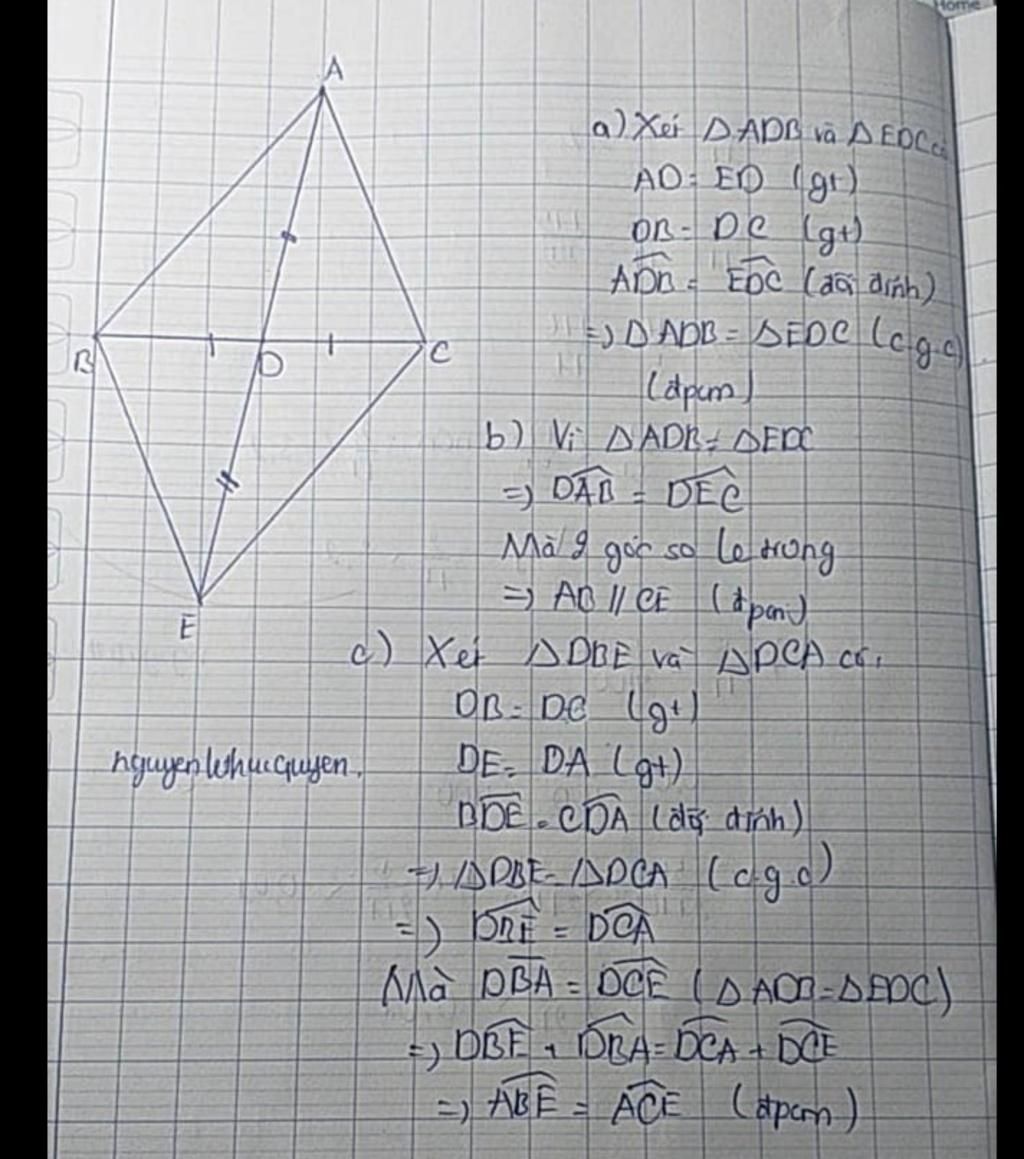 Home
A
B
D
C
E
a) Xét △ADB và △EDC có
AD = ED (gt)
DB = DC (gt)
ADB = EDC (đối đỉnh)
=> △ADB = △EDC (c.g.c)
(đpcm)
b) Vì △ADB = △EDC
=> DAB = DEC
Mà 2 góc so le trong
=> AB // CE (đpcm)
c) Xét △DBE và △DCA có:
DB = DC (gt)
DE = DA (gt)
BDE = CDA (đối đỉnh)
=> △DBE = △DCA (c.g.c)
=> DBE = DCA
Mà DBA = DCE (△ADB = △EDC)
=> DBE + DBA = DCA + DCE
=> ABE = ACE (đpcm)